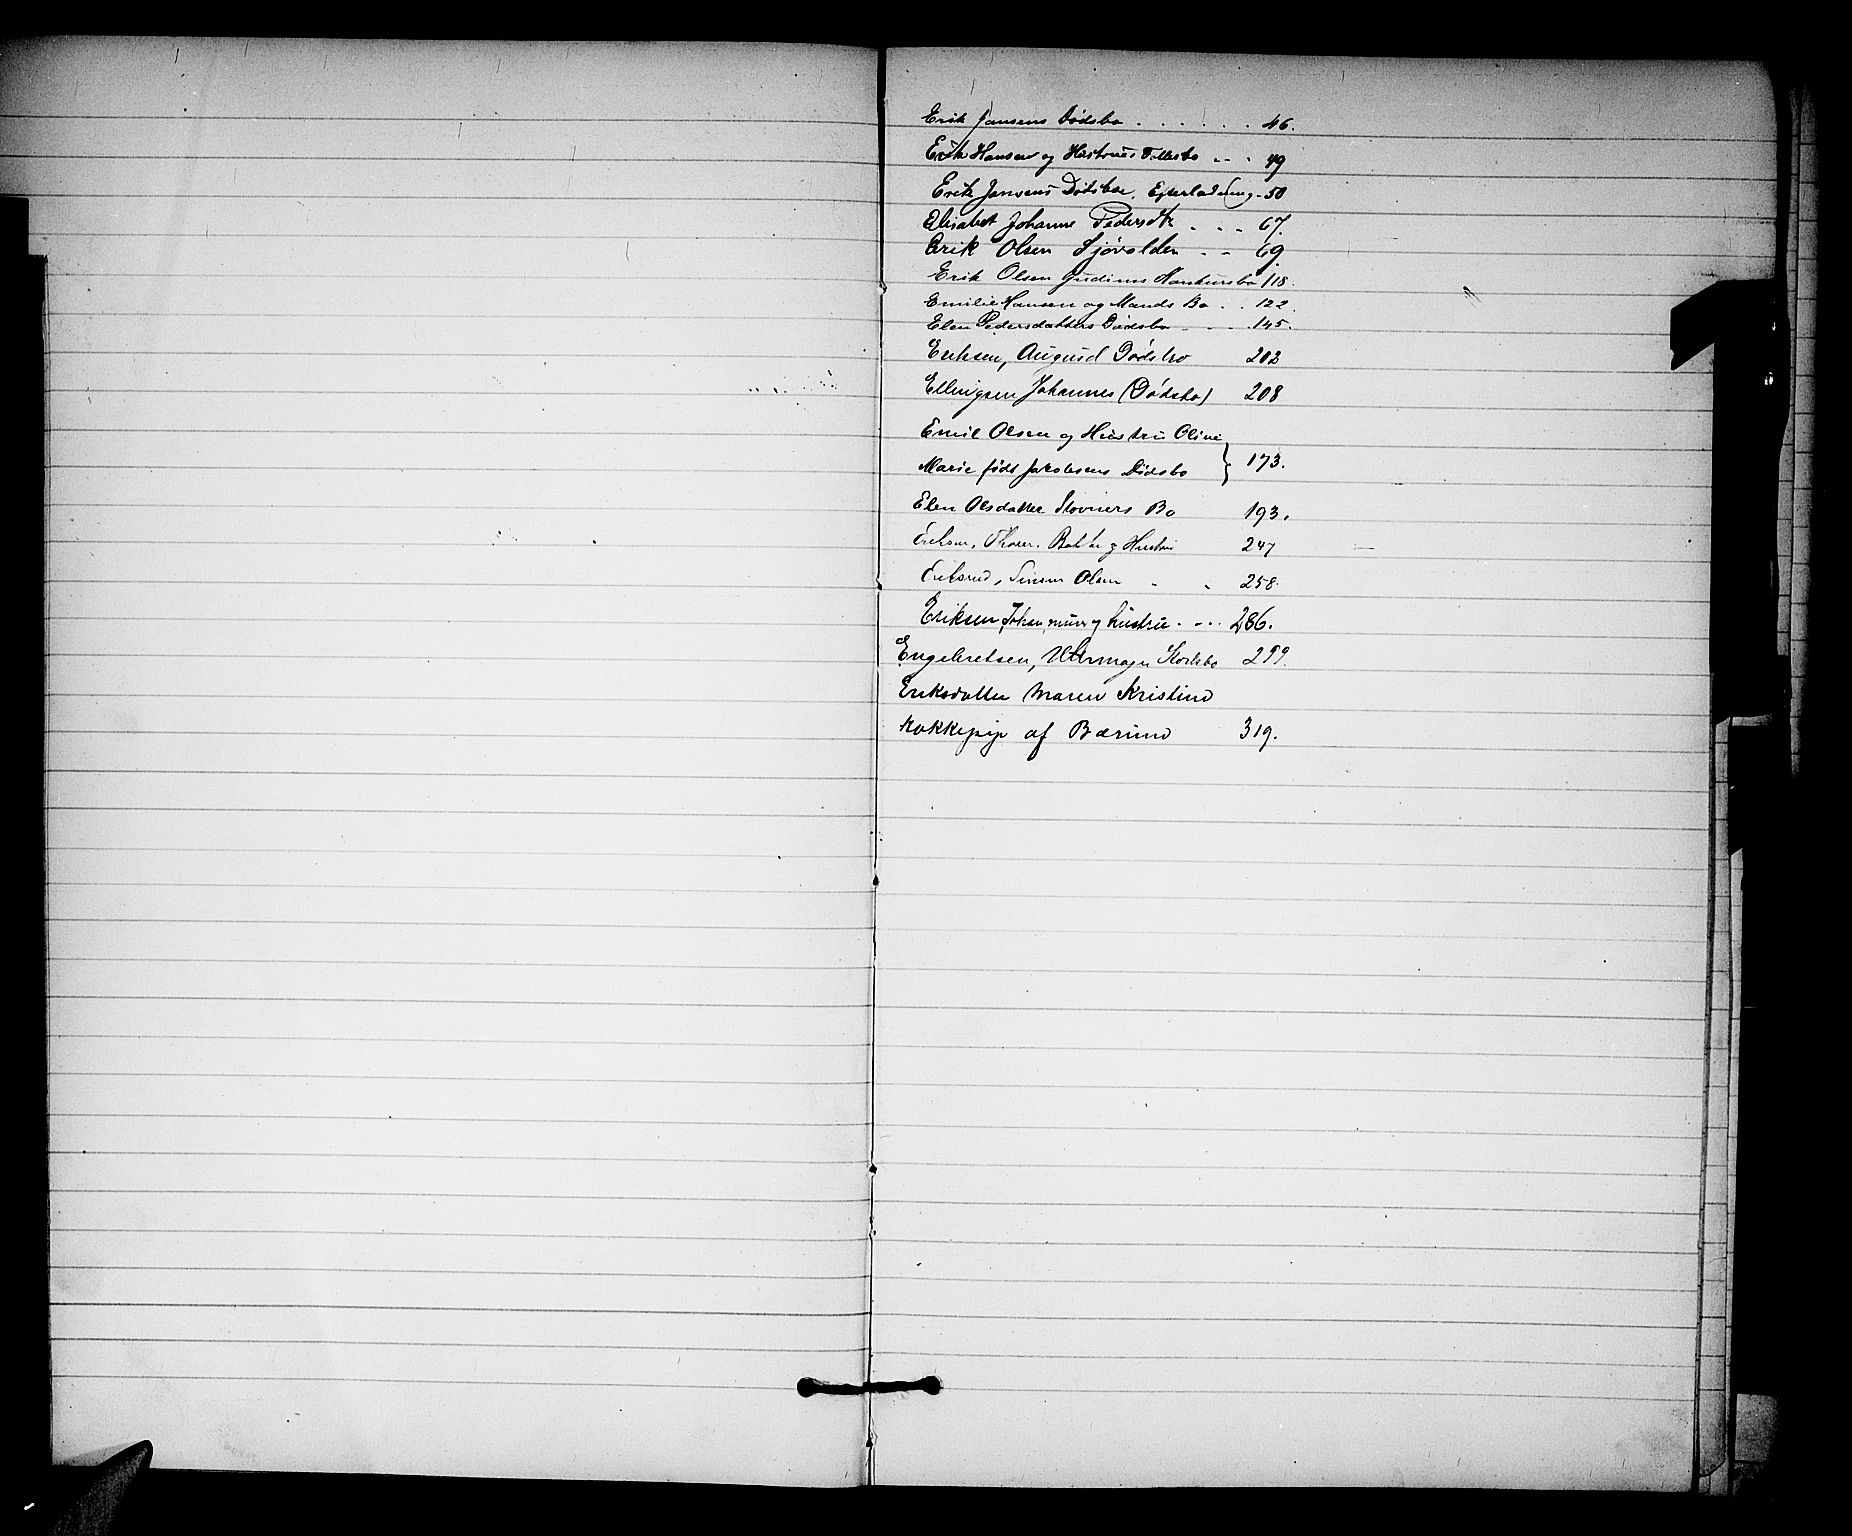 Erik Jansens Dødsbo . . . . . . 46.
Erik Hansen og Hustrues Fællesbo . . . 49
Erik Jansens Dødsboe, 50
Elisabet Johanne Pedersdtr . . . 67.
Erik Olsen Sjøvolden - - 69.
Erik Olsen Gudims Konkursbo 118.
Emilie Hansen og Mands Bo . . 122.
Elen Pedersdatters Dødsbo - - - . 145.
Eriksen, August Dødsbo 202
Ellingsen Johannes (Dødsbo) 208
Emil Olsen og Hustru Oline
Marie født Jacobsens Dødsbo } 173.
Elen Olsdatter Stovners Bo 193.
Eriksen, Thorer. og Hustru 247
Eriksrud, Simen Olsen - - 258.
Eriksen, Johan, og hustru . - .. 286.
Engebretsen, 299.
Eriksdatter Maren Kristine
af Bærum 319.